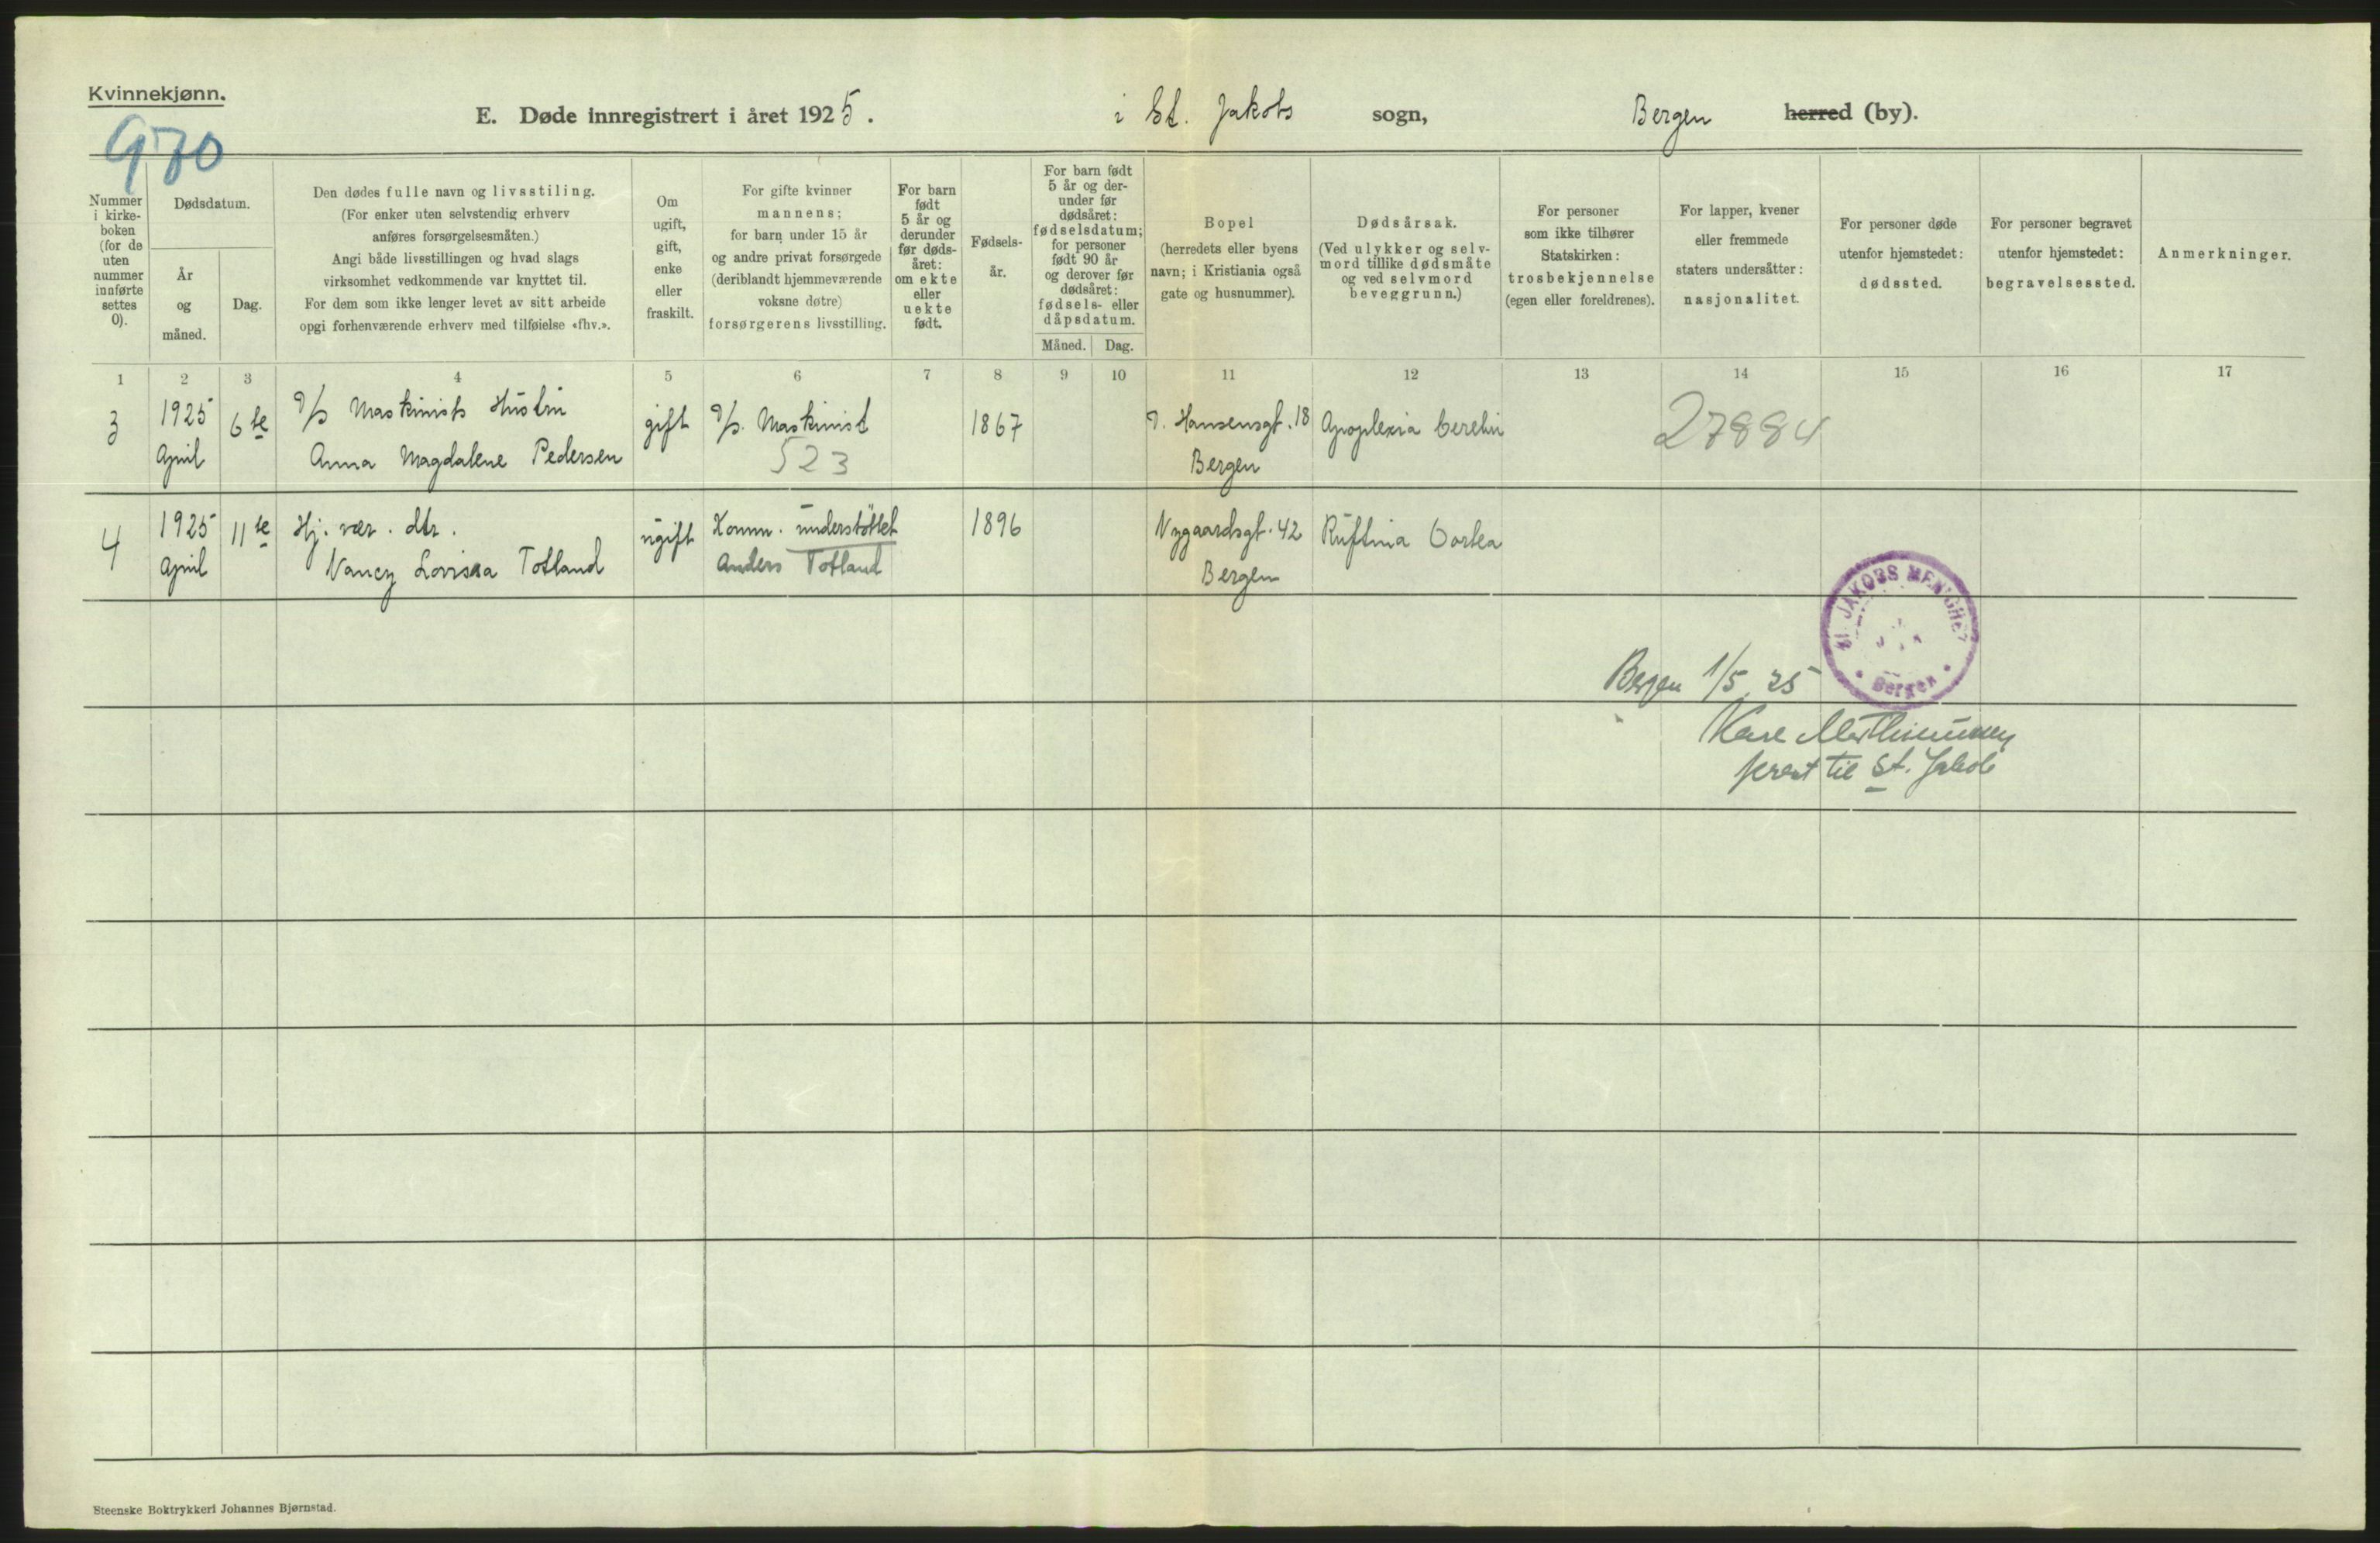 Kvinnekjønn.
970
E. Døde innregistrert i året 1925. i St. Jakobs sogn, Bergen herred (by).
Nummer i kirke- boken (for de uten nummer innførte settes 0).
Dødsdatum.
År og måned.
Dag.
Den dødes fulle navn og livsstiling.
(For enker uten selvstendig erhverv
anføres forsørgelsesmåten.)
Angi både livsstillingen og hvad slags
virksomhet vedkommende var knyttet til.
For dem som ikke lenger levet av sitt arbeide
opgi forhenværende erhverv med tilføielse «fhv.».
Om
ugift,
gift,
enke
eller
fraskilt.
For gifte kvinner
mannens;
for barn under 15 år
og andre privat forsørgede
(deriblandt hjemmeværende
voksne døtre)
forsørgerens livsstilling.
For barn
født
5 år og
derunder
før døds-
året:
om ekte
eller
uekte
født.
Fødsels-
år.
For barn født
5 år og der-
under før
dødsåret:
fødselsdatum;
for personer
født 90 år
og derover før
dødsåret:
fødsels- eller
dåpsdatum.
Måned. Dag.
Bopel
(herredets eller byens
navn; i Kristiania også
gate og husnummer).
Dødsårsak.
(Ved ulykker og selv-
mord tillike dødsmåte
og ved selvmord
beveggrunn.)
For personer
som ikke tilhører
Statskirken:
trosbekjennelse
(egen eller foreldrenes).
For lapper, kvener
eller fremmede
staters undersåtter:
nasjonalitet.
For personer døde
utenfor hjemstedet:
dødssted.
For personer begravet
utenfor hjemstedet:
begravelsessted.
Anmerkninger.
1 2 3 4 5 6 7 8 9 10 11 12 13 14 15 16 17
3
1925
April
6te
D/s Maskinists Hustru
Anna Magdalene Pedersen
gift
D/s. Maskinist
523
1867
Hansensgt. 18
Bergen
Apoplexia Cerebri
27884
4
1925
April
11te
Hj. vær. dtr.
Nancy Lovisa Totland
ugift
Komm. understøttet
Anders Totland
1896
Nygaardsgt. 42
Bergen
Ruftura Aortea
St. JAKOBS MENIGHET
Bergen
Bergen 1/5. 25
prest til St. Jakob
Steenske Boktrykkeri Johannes Bjørnstad.